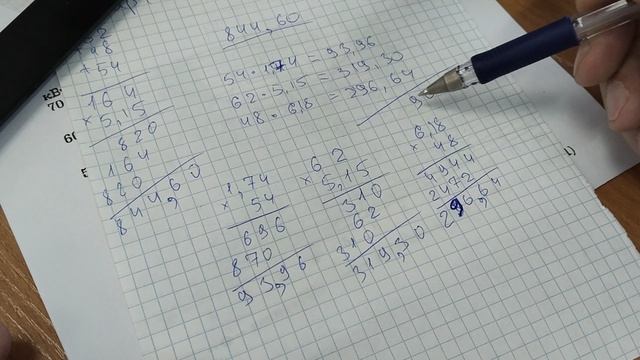 844,60
54 · 1,74 = 93,96
62 · 5,15 = 319,30
48 · 6,18 = 296,64
9
+ 54
164
× 5,15
820
164
820
844,60
1,74
× 54
696
870
93,96
62
× 5,15
310
62
310
319,30
6,18
× 48
4944
2472
296,64
кВ
70